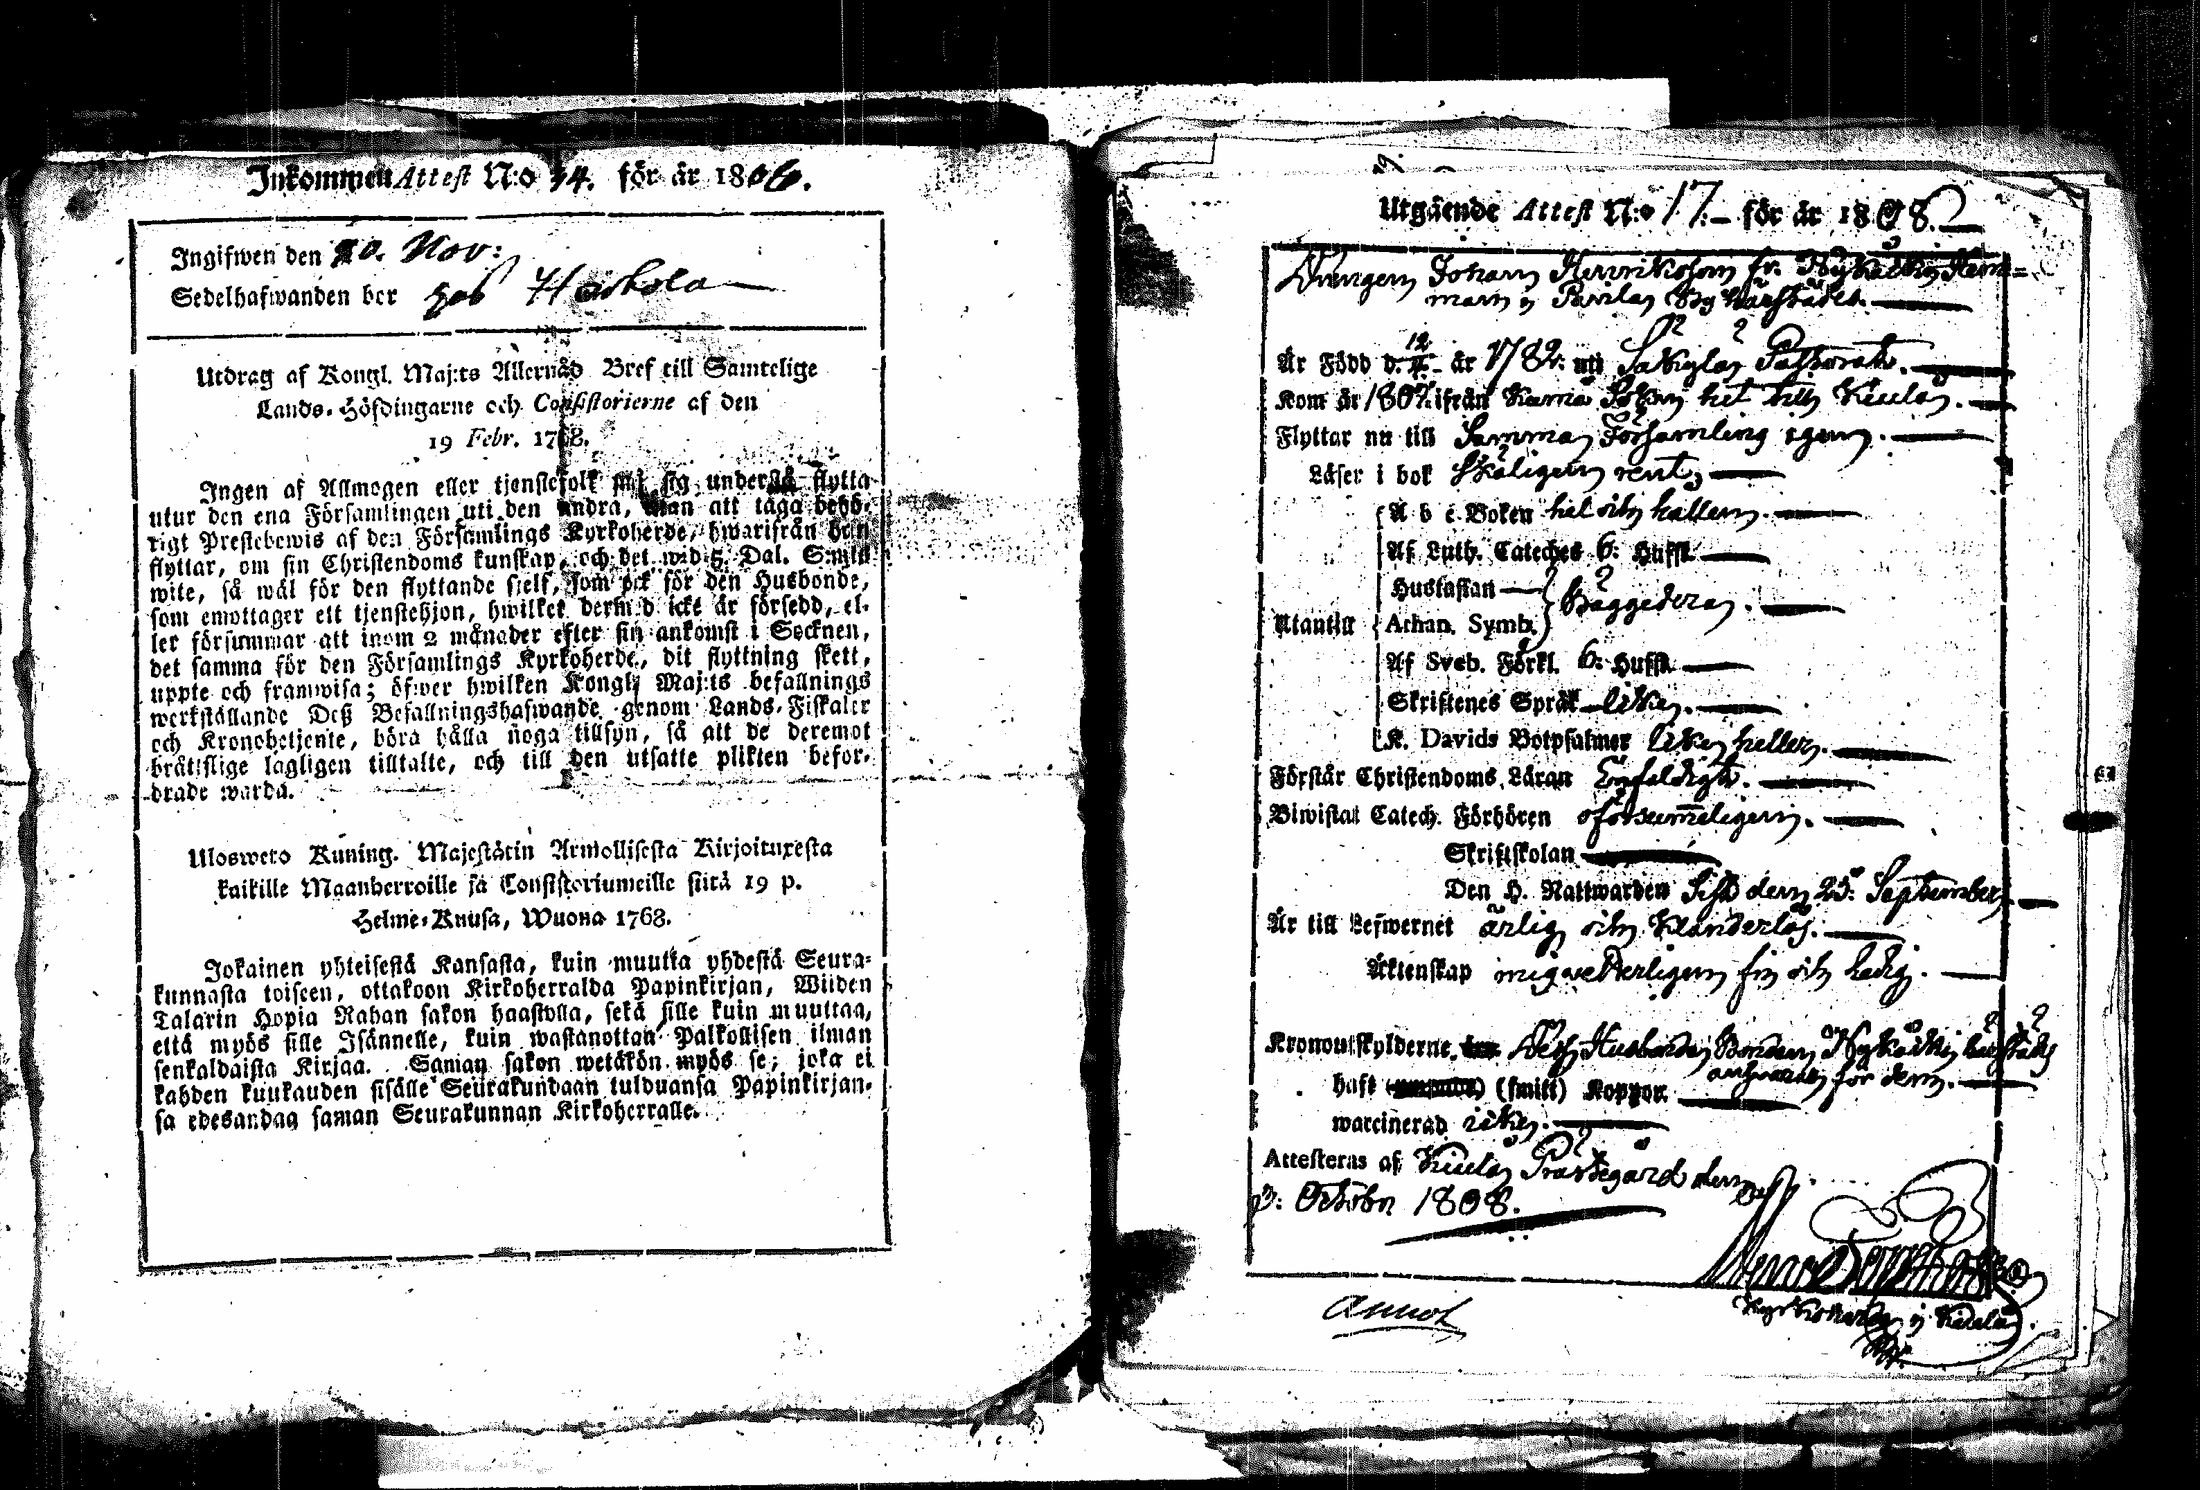 Inkommen Attest N:o 34. för år 1806.
Ingifwen den 20. Nov:
Sedelhafwanden bor hos Haskola
Utdrag af Kongl. Maj:ts Allernåd Bref till Samtelige
Lands-Höfdingarne och Consistorierne af den
19 Febr. 1768.
Ingen af Allmogen eller tjenstefolk må sig understå flytta
utur den ena Församlingen uti den andra, utan att taga behö-
rigt Prestebewis af den Församlings Kyrkoherde, hwarifrån han
flyttar, om sin Christendoms kunskap, och det wid 5 Dal. S:mts
wite, så wäl för den flyttande sielf, som ock för den Husbonde,
som emottager ett tjenstehjon, hwilket dermed icke är försedd, el-
ler försummar att inom 2 månader efter sin ankomst i Socknen,
det samma för den Församlings Kyrkoherde, dit flyttning skett,
uppte och framwisa; öfwer hwilken Kongl. Maj:ts befallnings
werkställande Deß Befallningshafwande genom Lands-Fiskaler
och Kronobetjente, böra hålla noga tillsyn, så att de deremot
brättslige lagligen tilltalte, och till den utsatte plikten befor-
drade warda.
Ulosweto Kuning. Majestätin Armollisesta Kirjoituxesta
kaikille Maanherroille ja Consistoriumeille siitä 19 p.
Helme-Kuusa, Wuona 1768.
Jokainen yhteisestä Kansasta, kuin muutta yhdestä Seura-
kunnasta toiseen, ottakoon Kirkoherralda Papinkirjan, Wiiden
Talarin Hopia Rahan sakon haastolla, sekä sille kuin muuttaa,
että myös sille Isännelle, kuin wastanottan Palkollisen ilman
senkaldaista Kirjaa. Saman sakon wetäkön myös se, joka ei
kahden kuukauden sisälle Seurakundaan tulduansa Papinkirjan-
sa edesandaa saman Seurakunnan Kirkoherralle.
Utgående Attest N:o 17.- för år 1808.
Drängen Johan Henriksson fr. Nykäckin Hem=
man i Pavila By härstädes.
Är Född d. 12/4 år 1782. uti Sakyla Pastorat.
Kom år 1807. ifrån Kumo Sokn hit till Kiula.
Flyttar nu till Samma Församling igen.
Läser i bok skäligen rent,
A b c Boken hel och hållen.
Af Luth. Cateches 6: Hufst.
Hustaflan
Utantill Athan. Symb. Bäggedera.
Af Sveb. Förkl. 6: Hufst.
Skriftenes Språk icke.
K. Davids Botpsalmer icke heller.
Förstår Christendoms Läran Enfaldigt.
Biwistat Catech. Förhören oförsumeligen.
Skriftskolan
Den H. Nattwarden Sist den 25. September
Är till Lefwernet ärlig och klanderlös.
Äktenskap migveterligen fri och ledig.
Kronoutskylderne Dess Husbonde Bonden Nykäcki härstädes
answarar för dem.
haft (smitt) Koppor.
waccinerad icke.
Attesteras af Kiula Prästegård den
3: October 1808.
Kyrkoherde i Kiula.
Annot